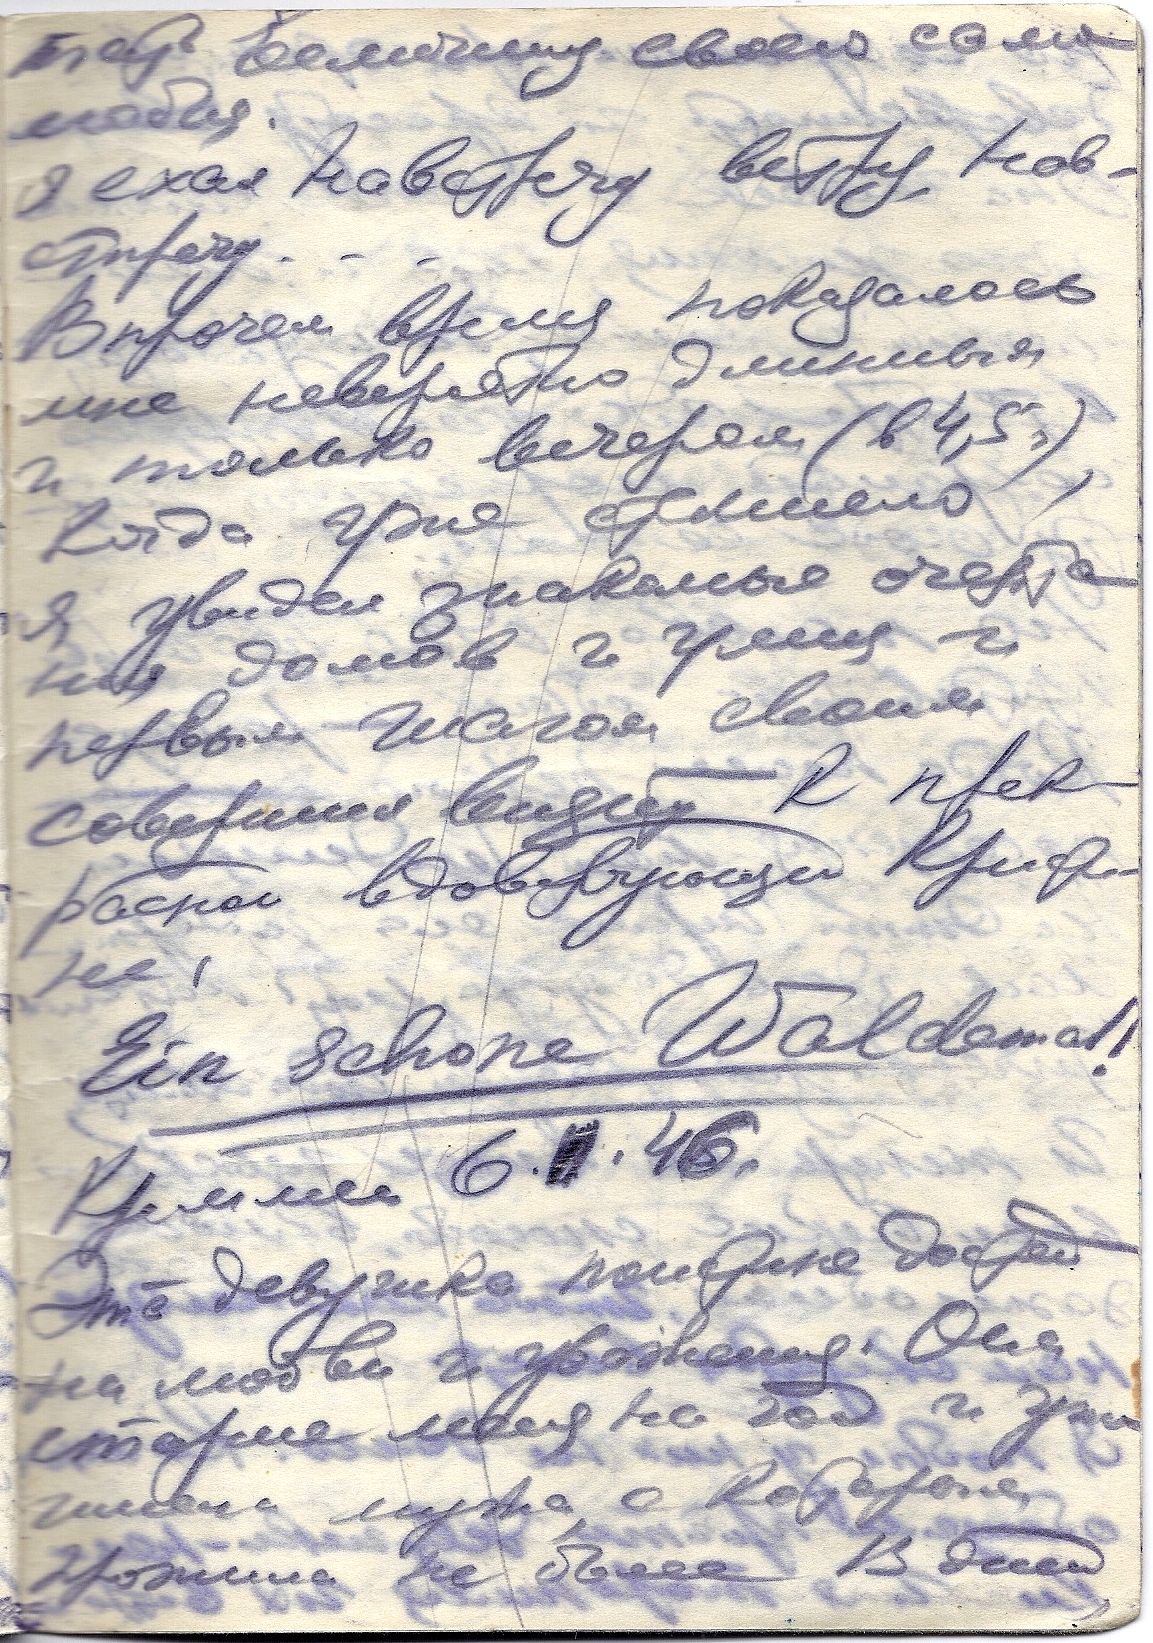 величину своего само-
любия.
Я ехал навстречу ветру, нав-
стречу. . .
Впрочем время показалось
мне невероятно длинным
и только вечером (в 4,5 ч),
когда уже стемнело,
я увидел знакомые очерта-
ния домов и улиц и
первым шагом своим
совершил визит к прек-
расной вдовствующей Кристи-
не!
Ein schone Waldemar!!
Креммен 6.II.46.
Эта девушка достой
на любви и уважения. Она
старше меня на год и уже
имела мужа, с которым
прожила не более 13 дней